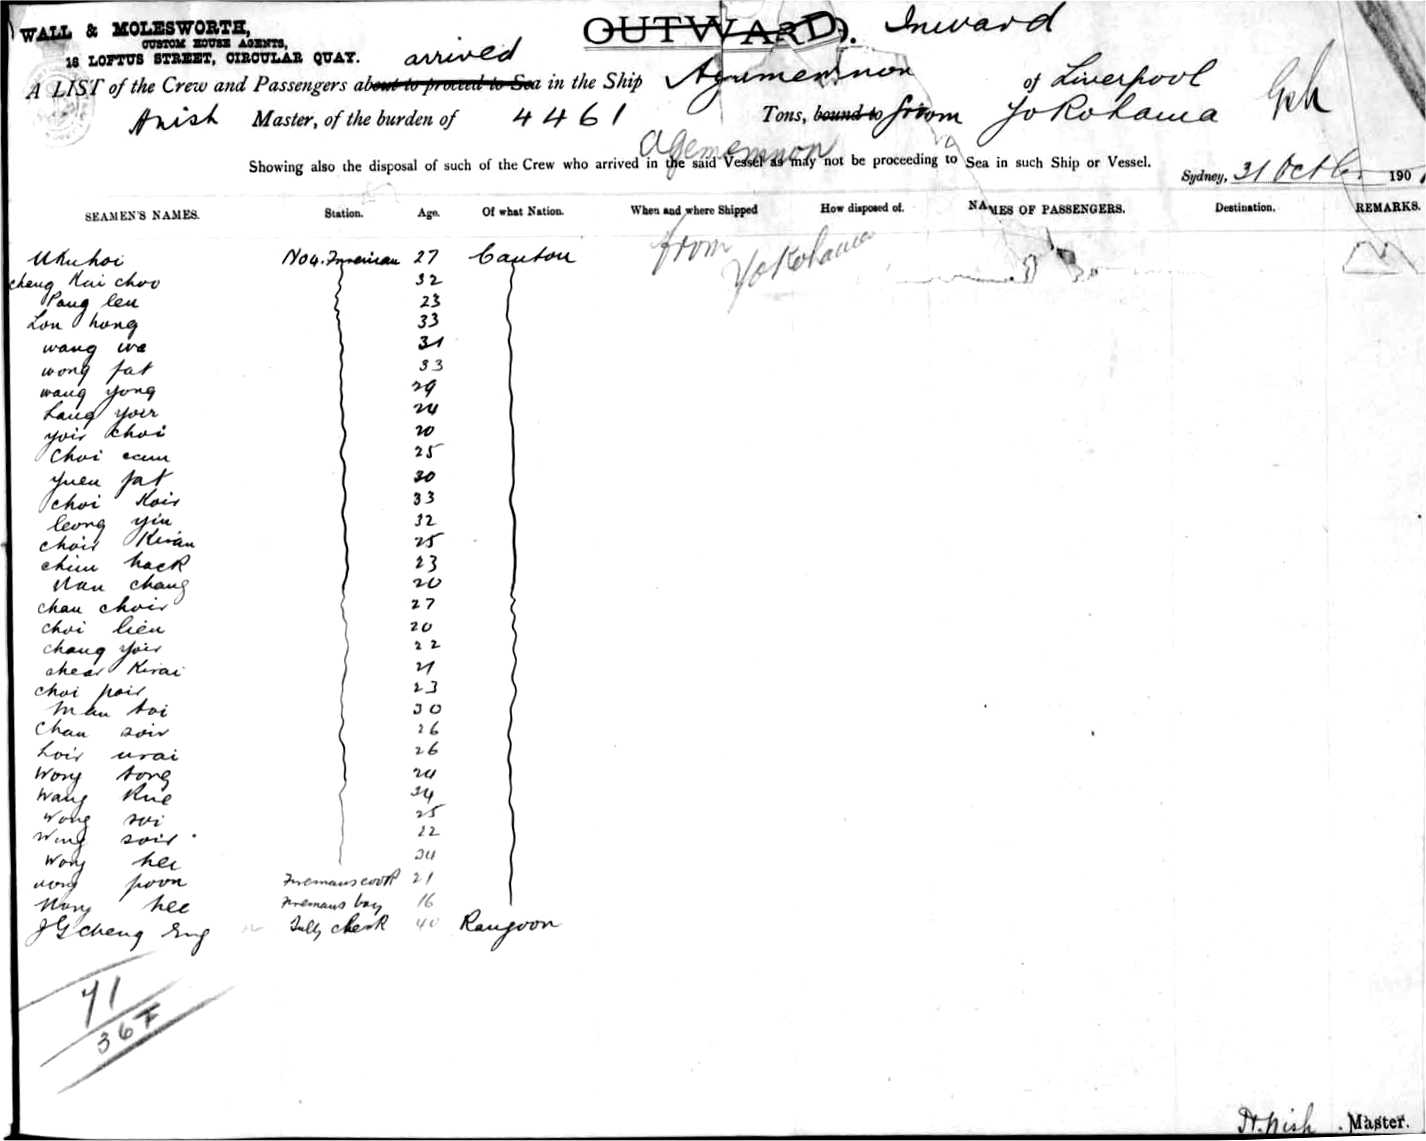 WALL & MOLESWORTH,
CUSTOM HOUSE AGENTS,
16 LOFTUS STREET, CIRCULAR QUAY.
OUTWARD. Inward
arrived
A LIST of the Crew and Passengers about to proceed to Sea in the Ship Agamemnon of Liverpool
Master, of the burden of 4461 Tons, bound to from Yokohama
Agememnon
Showing also the disposal of such of the Crew who arrived in the said Vessel as may not be proceeding to Sea in such Ship or Vessel.
Sydney, 31 Octber 190
SEAMEN'S NAMES. Station. Age. Of what Nation. When and where Shipped How disposed of. NAMES OF PASSENGERS. Destination. REMARKS.
from Yokohama
No 4. Fireman 27 Canton
cheng Kui choo 32
Pang leu 23
Lou hong 33
wang wa 31
wong fat 33
wang yong 29
Lang yoir 24
yoir choi 20
Choi cam 25
yuen fat 30
choi Koir 33
leong yiu 32
choir Kwan 25
chim hack 23
Nan chang 20
chan choir 27
choi lien 20
chang yoir 22
chear Kwai 21
choi poir 23
man toi 30
Chan soir 26
Loir urai 26
Wong tong 24
Wang Kue 34
Wong soi 25
Wong soir 22
Wong hee 34
wong poon Firemans cook 21
Wong hee Firemans boy 16
J G Cheng Eng Tally clerk 40 Rangoon
71
36 F
H. Nish Master.